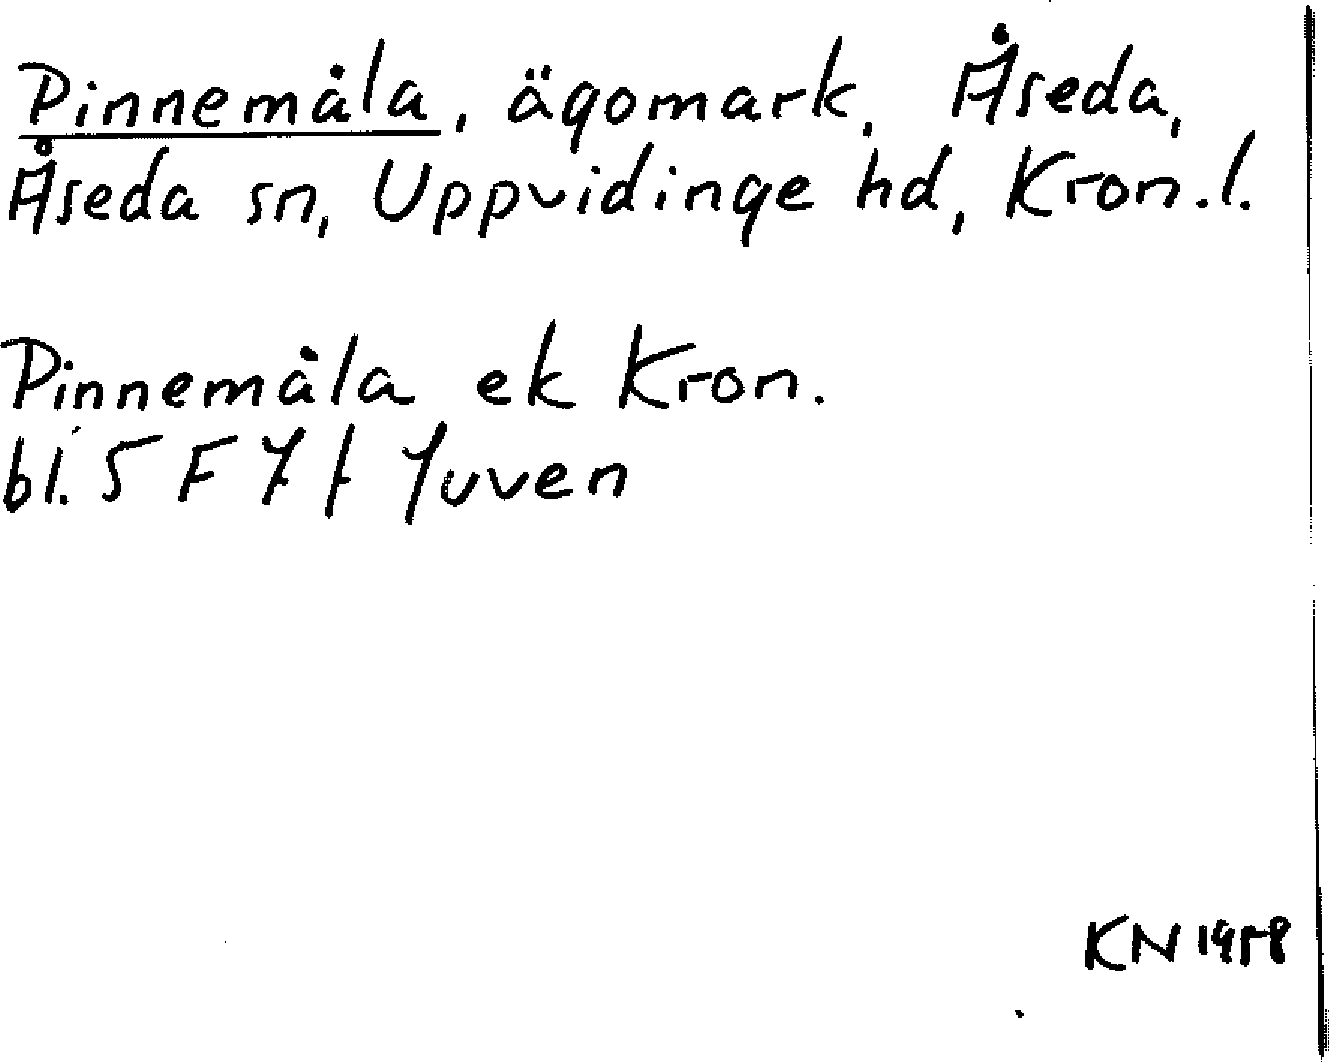 Pinnemåla, ägomark, Åseda,
Åseda sn, Uppvidinge hd, Kron.l.
Pinnemåla ek Kron.
bl. 5 F 7 f Juven
KN 1958